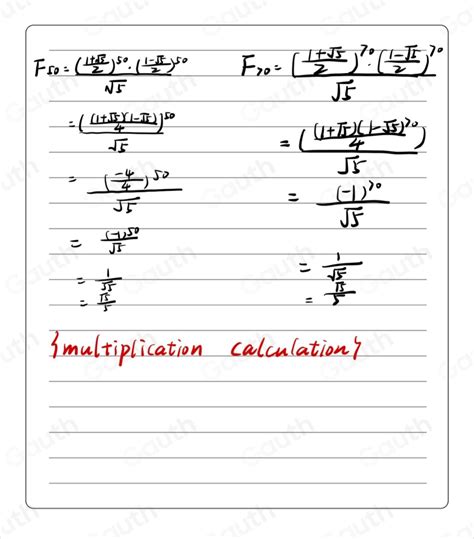 F₅₀ = ((1+√5)/2)⁵⁰ · ((1-√5)/2)⁵⁰ / √5
= ((1+√5)(1-√5)/4)⁵⁰ / √5
= (-4/4)⁵⁰ / √5
= (-1)⁵⁰ / √5
= 1/√5
= √5/5
F₇₀ = ((1+√5)/2)⁷⁰ · ((1-√5)/2)⁷⁰ / √5
= ((1+√5)(1-√5)⁷⁰/4) / √5
= (-1)⁷⁰ / √5
= 1/√5
= √5/5
{multiplication calculation}